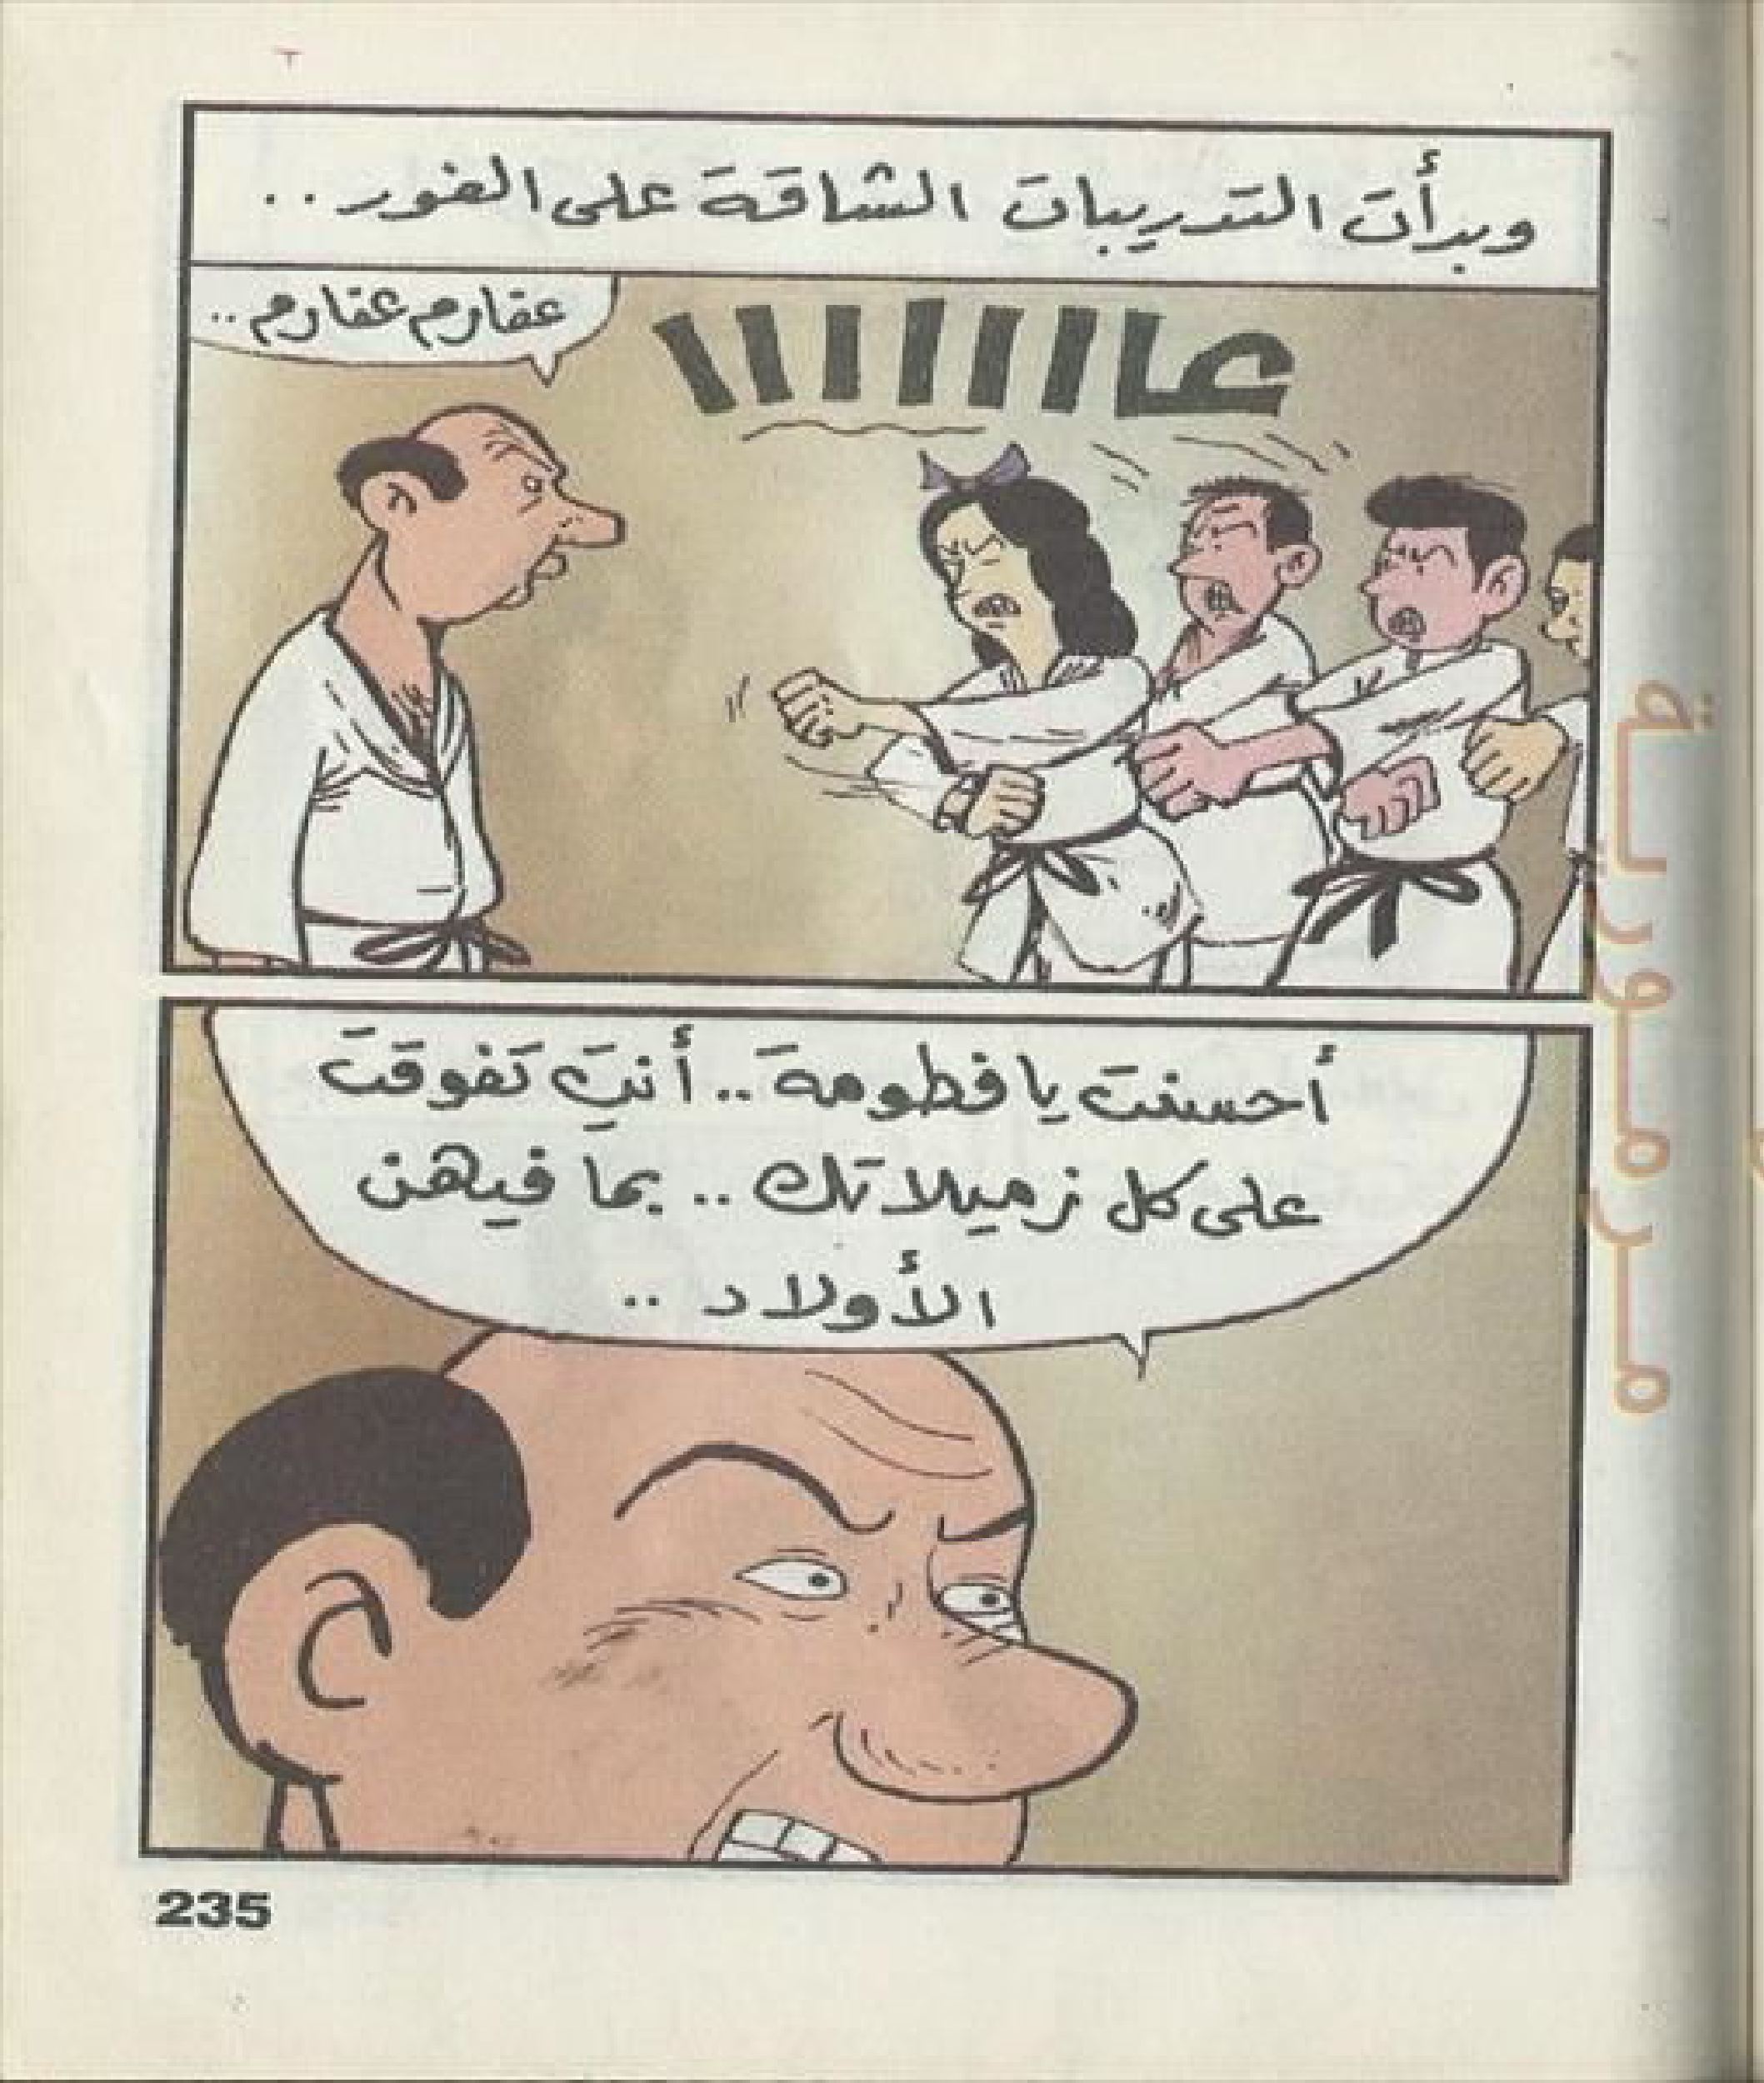 وبدأت التدريبات الشاقة على الفور..
عفارم عفارم..
عااااااا
أحسنت يا فطومة.. أنتِ تفوقت
على كل زميلاتك.. بما فيهن
الأولاد..
235
مرمورية